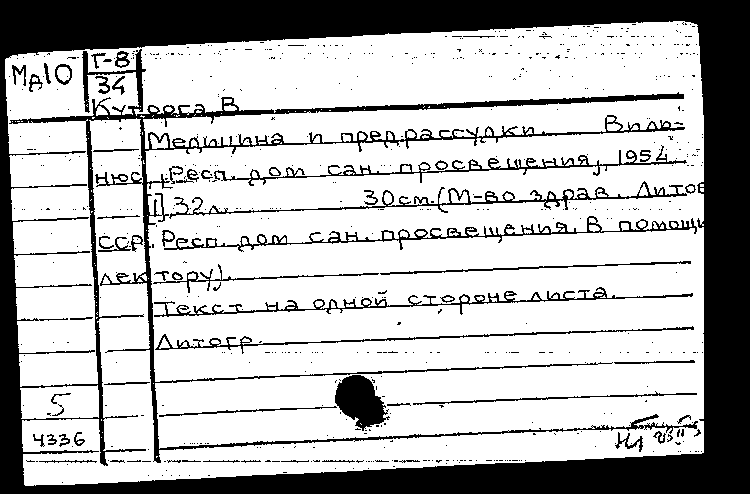 Мд10
Г-8
34
Куторга, В.
Медицина и предрассудки. Виль-
нюс, Респ. дом сан. просвещения, 1954.
[I], 32 л. 30 см. (М-во здрав. Литов.
ССР. Респ. дом сан. просвещения. В помощь
лектору).
Текст на одной стороне листа.
Литогр.
5
4336